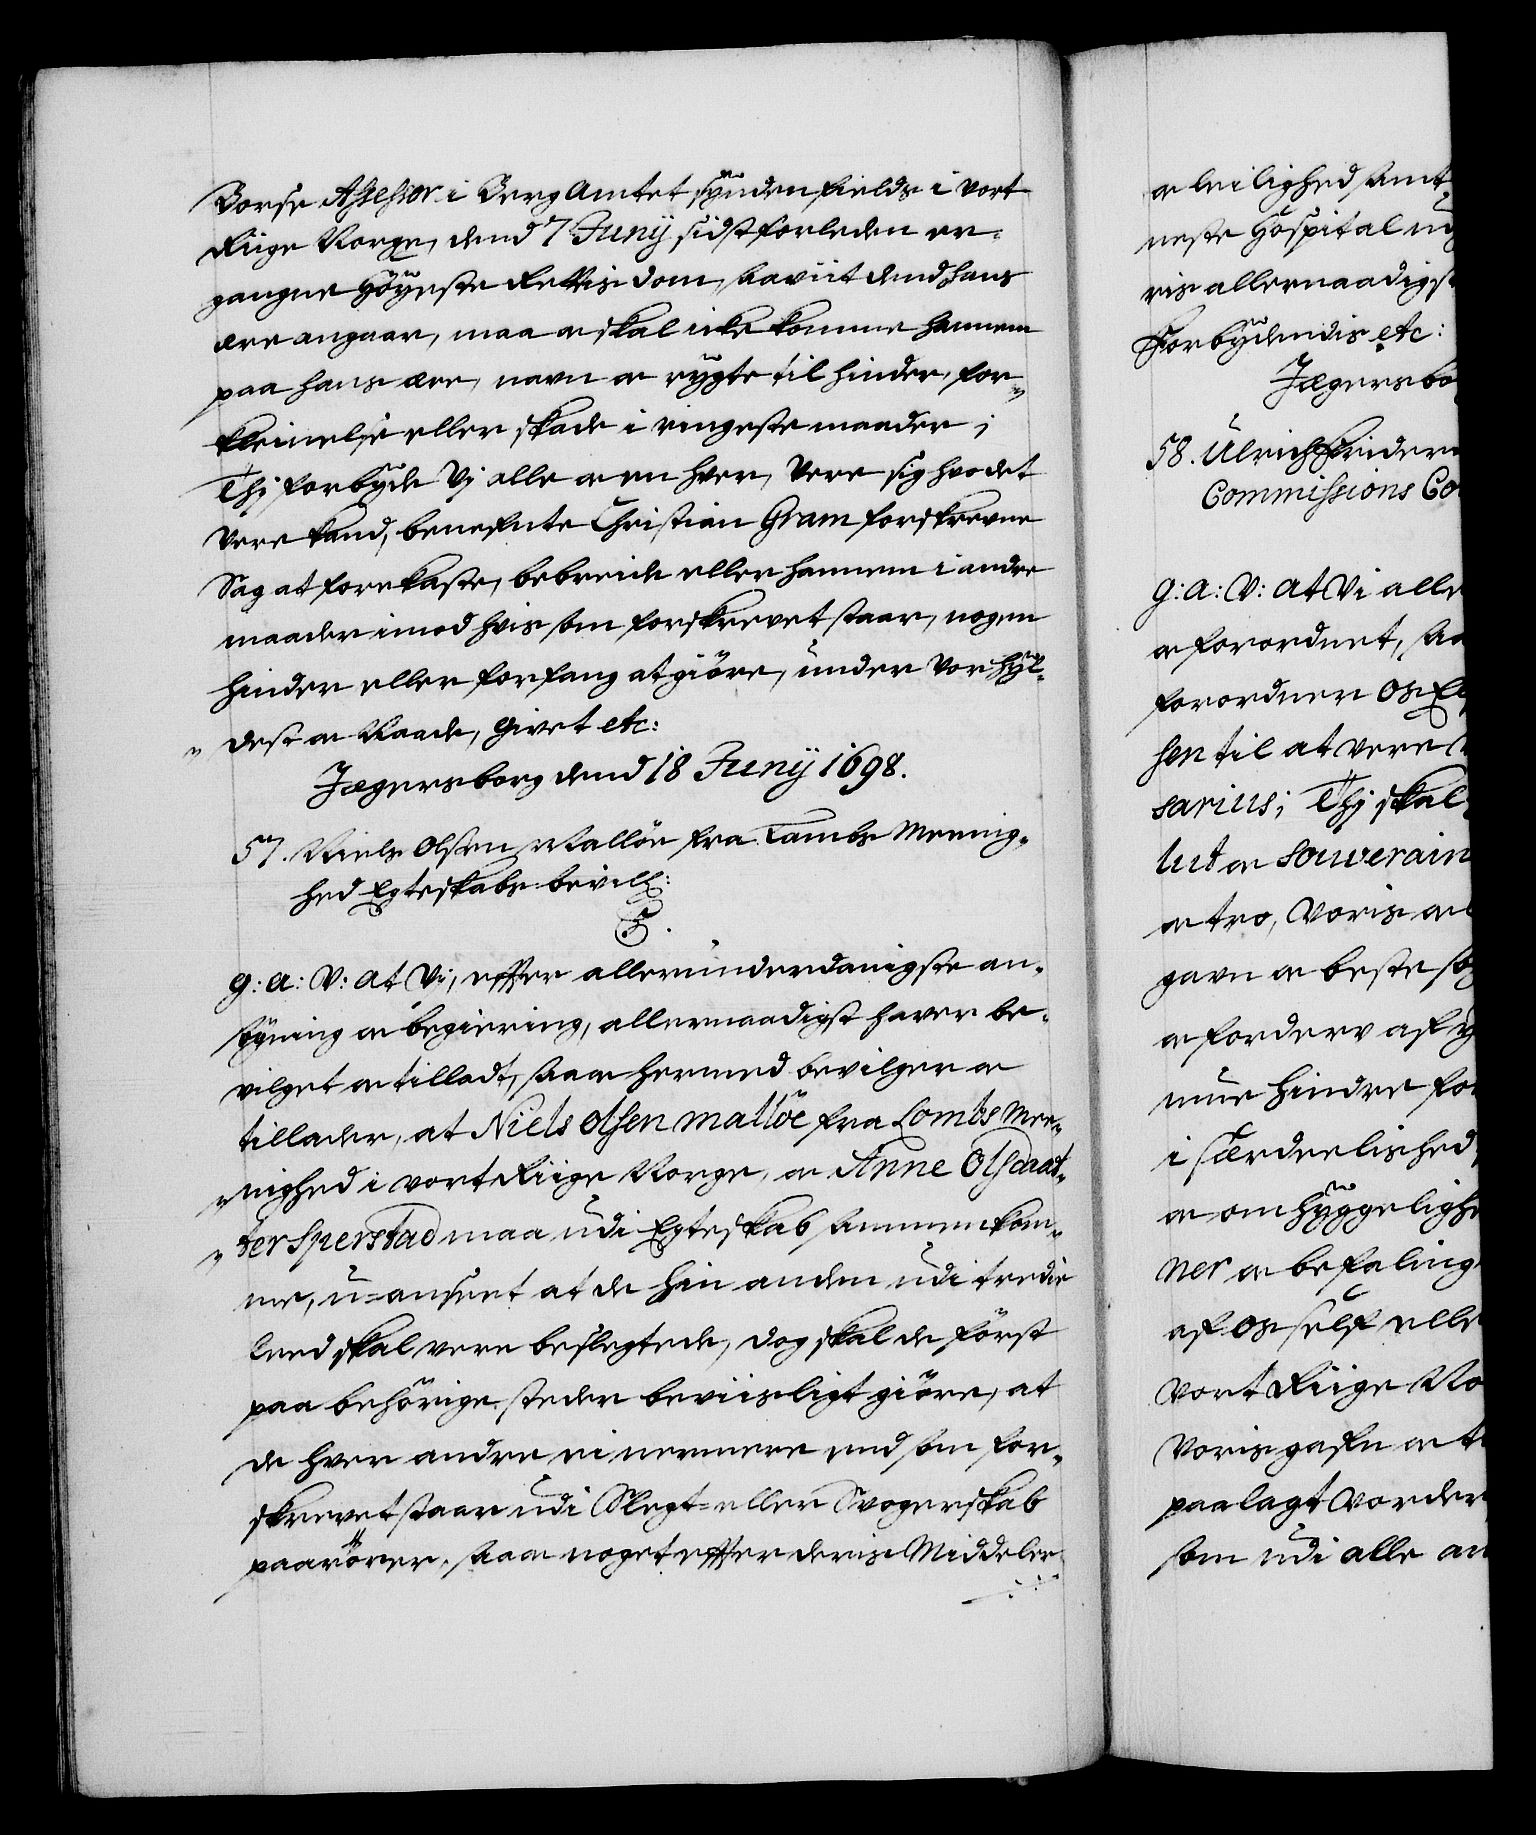 Borse Assessor i Berg Amtet syndenfields i vort
Riige Norge, dend 7 Juny sidstforleden er-
gangne Höyeste Rettis dom, saaviit dend hans
ære angaar, maa og skal icke komme hannem
paa hans ære, navn og rygte til hinder, for-
kleinelse eller skade i ringeste maader;
Thj forbyde Vj alle og en hver, Vere sig hvo det
Vere kand, benefnte Christian Gram forskrevne
Sag at forekaste, bebreide eller hannem i andre
maader imod hvis som forskrevet staar, nogen
hinder eller forfang at giöre, under Vor hyl-
dest og Naade, Givet etc:
Jægersborg dend 18 Juny 1698.
57. Niels Olsen Mallöe fra Lombs Meenig-
hed Egteskabs bevill:
G: A: V: at Vi, effter allerunderdanigste an-
sygning og begiering, allernaadigst haver be-
vilget og tilladt, saa og hermed bevilger og
tillader, at Niels Olsen mallöe fra Lombs Mee-
nighed i vort Riige Norge, og Anne Olsdaat-
ter Sperstad maa udi Egteskab sammenkom-
me, u-anseet at de hin anden udi tredie
Leed skal vere beslegtede, dog skal de först
paa behörige steder beviisligt giöre, at
de hver andre ei nermere end som for-
skrevet staar udi Slegt- eller Svogerskab
paarörer, saa og noget effter deris Middeler
og leilighed samt-
neste Hospital
ris allernaadigst
Forbydendis etc:
Jægersbo
58. Ulrich Frideri
Commissions Co
G: A: V: at Vi alle
og forordnet, saa
forordner os
sen til at vere
sarius; Thj skal
lut og souverain
og tro, Voris og
gavn og beste
og forderv af
mue hindre for
i særdeelished
og omhyggelighe
ner og befaling
af os self elle
vort Riige No
Voris gafn og
paalagt vorder
som udi alle an